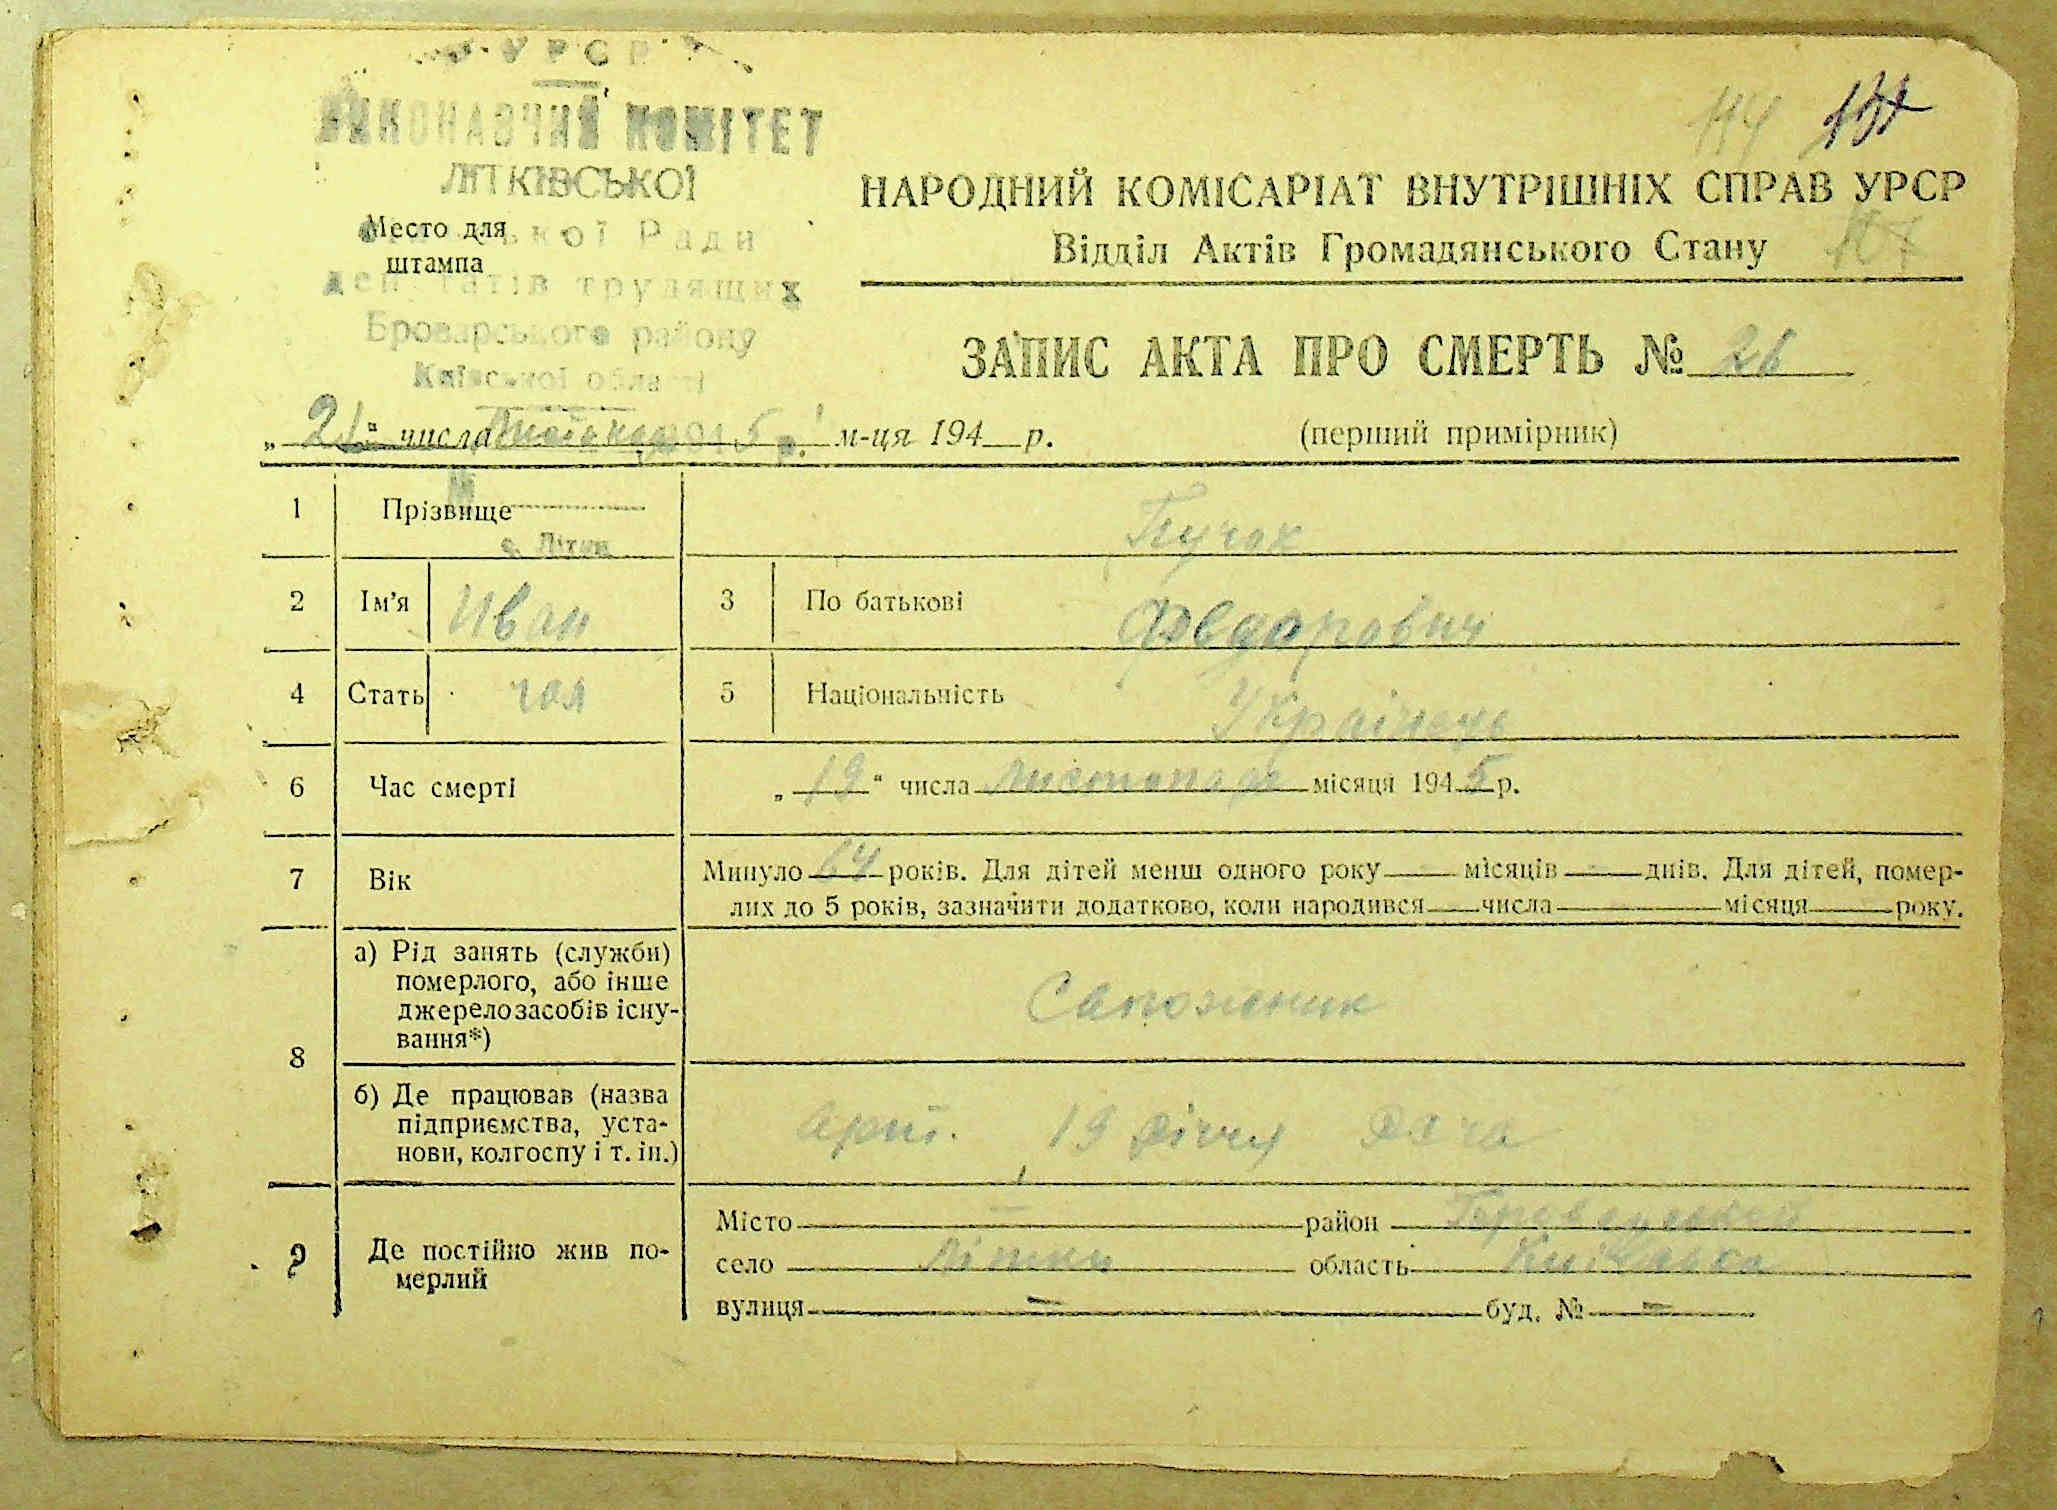 УРСР
ВИКОНАВЧИЙ КОМІТЕТ
ЛІТКІВСЬКОЇ
Ради
депутатів трудящих
Броварського району
Київської області
Место для
штампа
НАРОДНИЙ КОМІСАРІАТ ВНУТРІШНІХ СПРАВ УРСР
Відділ Актів Громадянського Стану
107
ЗАПИС АКТА ПРО СМЕРТЬ № 26
„21" числа м-ця 194 р.
(перший примірник)
1 Прізвище
с. Літки
2 Ім'я Иван 3 По батькові Федорович
4 Стать чол 5 Національність Українець
6 Час смерті „19" числа Листопада місяця 1945 р.
7 Вік Минуло 64 років. Для дітей менш одного року — місяців — днів. Для дітей, помер-
лих до 5 років, зазначити додатково, коли народився числа місяця року.
8 а) Рід занять (служби)
померлого, або інше
джерело засобів існу-
вання*)
Сапожник
б) Де працював (назва
підприємства, уста-
нови, колгоспу і т. ін.)
Арт. 19
9 Де постійно жив по-
мерлий
Місто — район Броварський
село Літки область Київська
вулиця — буд. № —